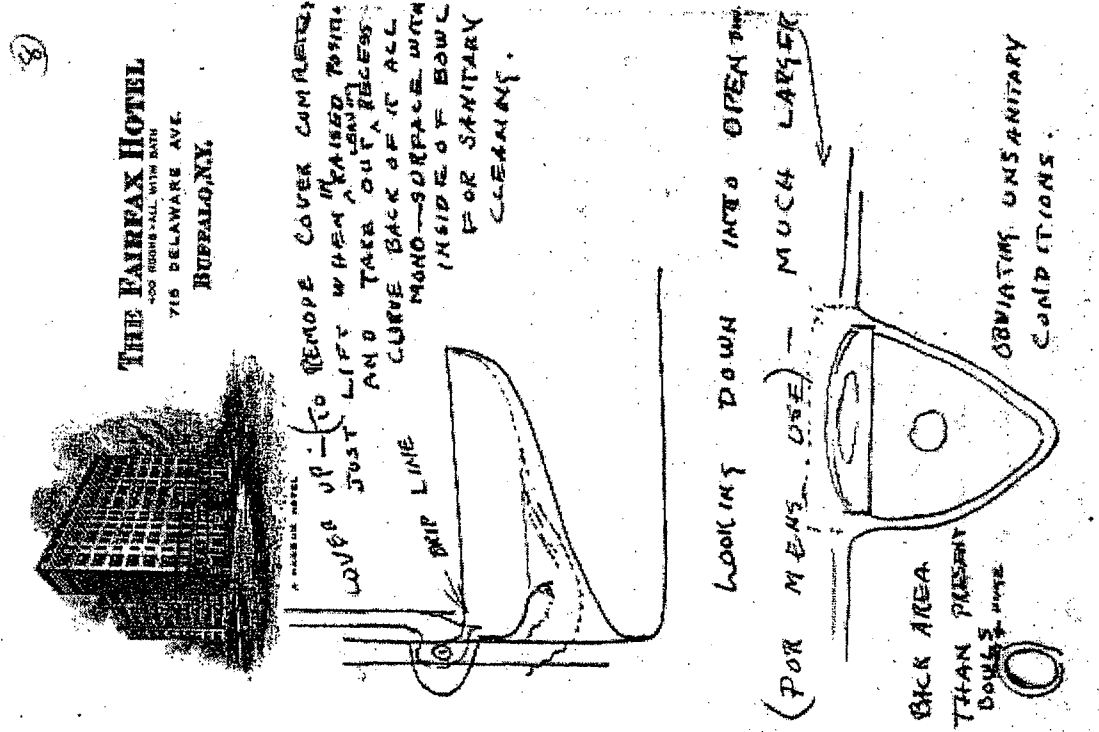 8
THE FAIRFAX HOTEL
400 ROOMS—ALL WITH BATH
715 DELAWARE AVE.
BUFFALO, N.Y.
COVER UP — (TO REMOVE COVER COMPLETELY
JUST LIFT WHEN IN RAISED POSITION
AND TAKE OUT LEAVING RECESS.
CURVE BACK OF IT ALL
MONO-SURFACE WITH
INSIDE OF BOWL
FOR SANITARY
CLEANING.
DRIP LINE
LOOKING DOWN INTO OPEN
(FOR MENS USE) — MUCH LARGER
BACK AREA
THAN PRESENT
BOWLS
OBVIATING UNSANITARY
CONDITIONS.